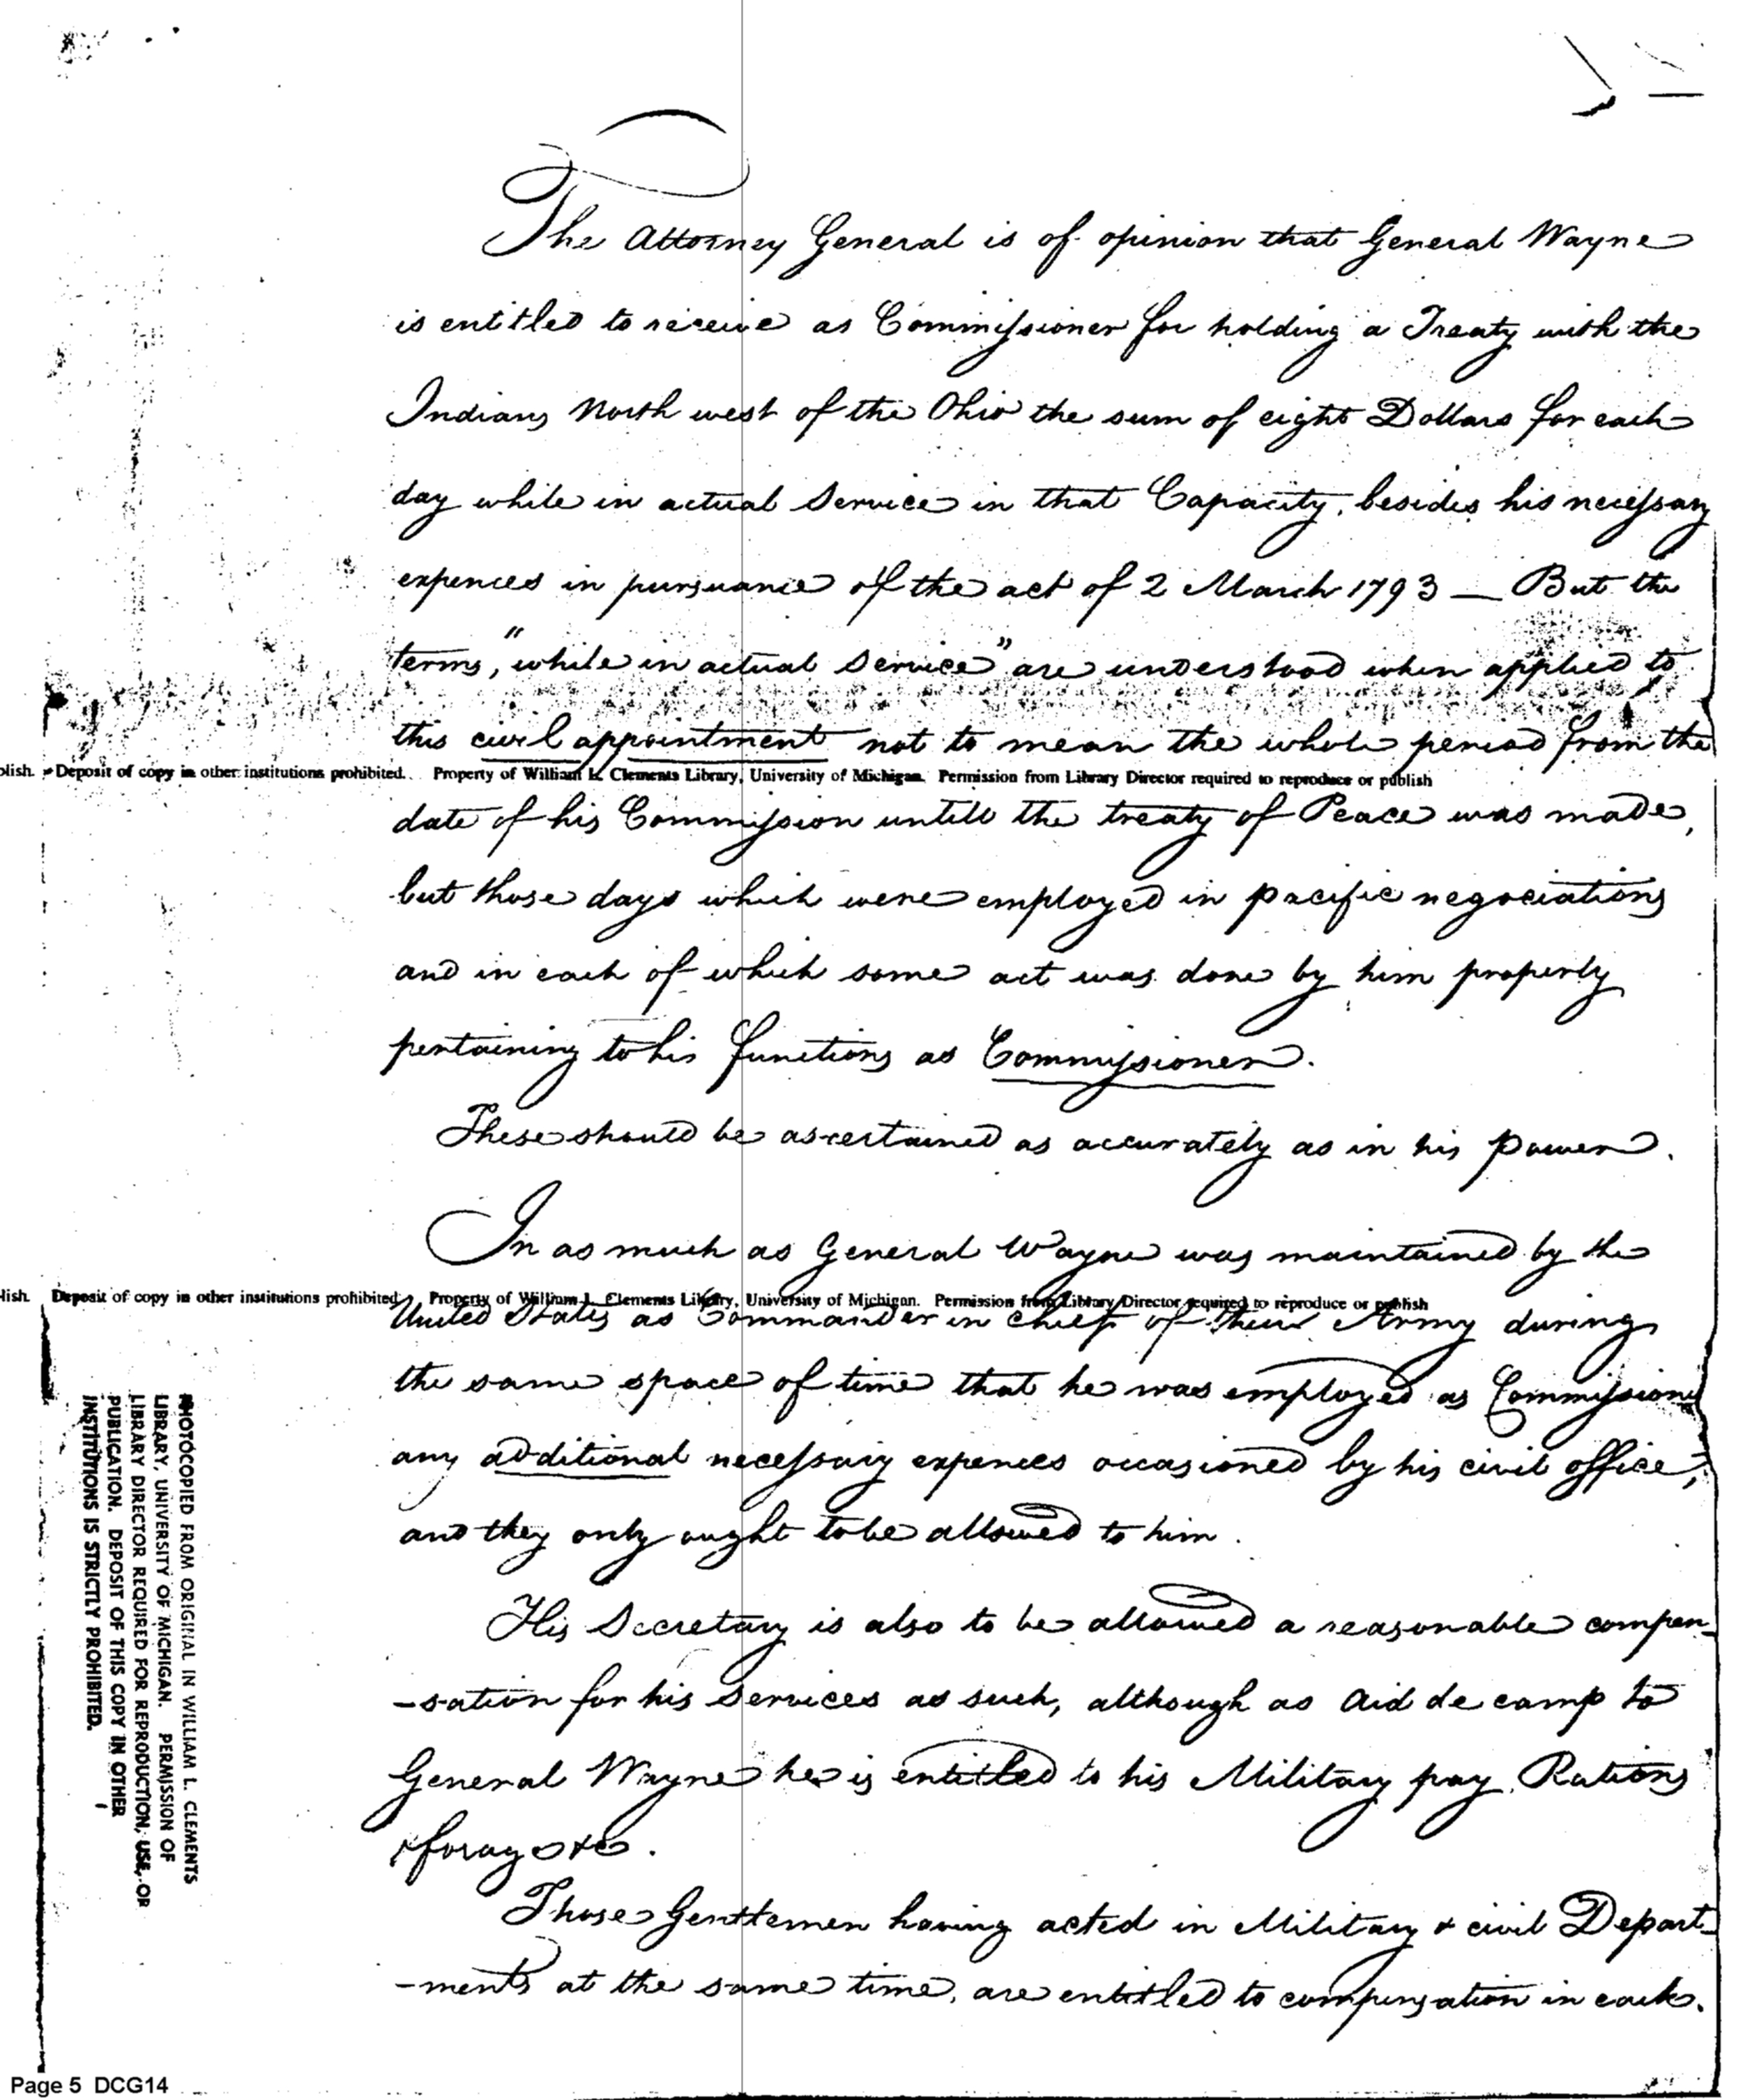 The Attorney General is of opinion that General Wayne
is entitled to receive as Commissioner for holding a Treaty with the
Indians North west of the Ohio the sum of eight Dollars for each
day while in actual Service in that Capacity, besides his necessary
expences in pursuance of the act of 2 March 1793 — But the
terms, "while in actual Service" are understood when applied to
this civil appointment not to mean the whole period from the
plish. Deposit of copy in other institutions prohibited. Property of William L. Clements Library, University of Michigan. Permission from Library Director required to reproduce or publish
date of his Commission untill the treaty of Peace was made,
but those days which were employed in pacific negociations
and in each of which some act was done by him properly
pertaining to his functions as Commissioner.
These should be ascertained as accurately as in his power.
In as much as General Wayne was maintained by the
lish. Deposit of copy in other institutions prohibited. Property of William L. Clements Library, University of Michigan. Permission from Library Director required to reproduce or publish
United States as Commander in chief of their Army during
the same space of time that he was employed as Commissioner
any additional necessary expences occasioned by his civil office,
and they only ought to be allowed to him.
His Secretary is also to be allowed a reasonable compen-
-sation for his services as such, although as Aid de camp to
General Wayne he is entitled to his Military pay Rations
& forage &c.
Those Gentlemen having acted in Military & civil Depart-
-ments at the same time, are entitled to compensation in each.
PHOTOCOPIED FROM ORIGINAL IN WILLIAM L. CLEMENTS
LIBRARY, UNIVERSITY OF MICHIGAN. PERMISSION OF
LIBRARY DIRECTOR REQUIRED FOR REPRODUCTION, USE, OR
PUBLICATION. DEPOSIT OF THIS COPY IN OTHER
INSTITUTIONS IS STRICTLY PROHIBITED.
Page 5 DCG14